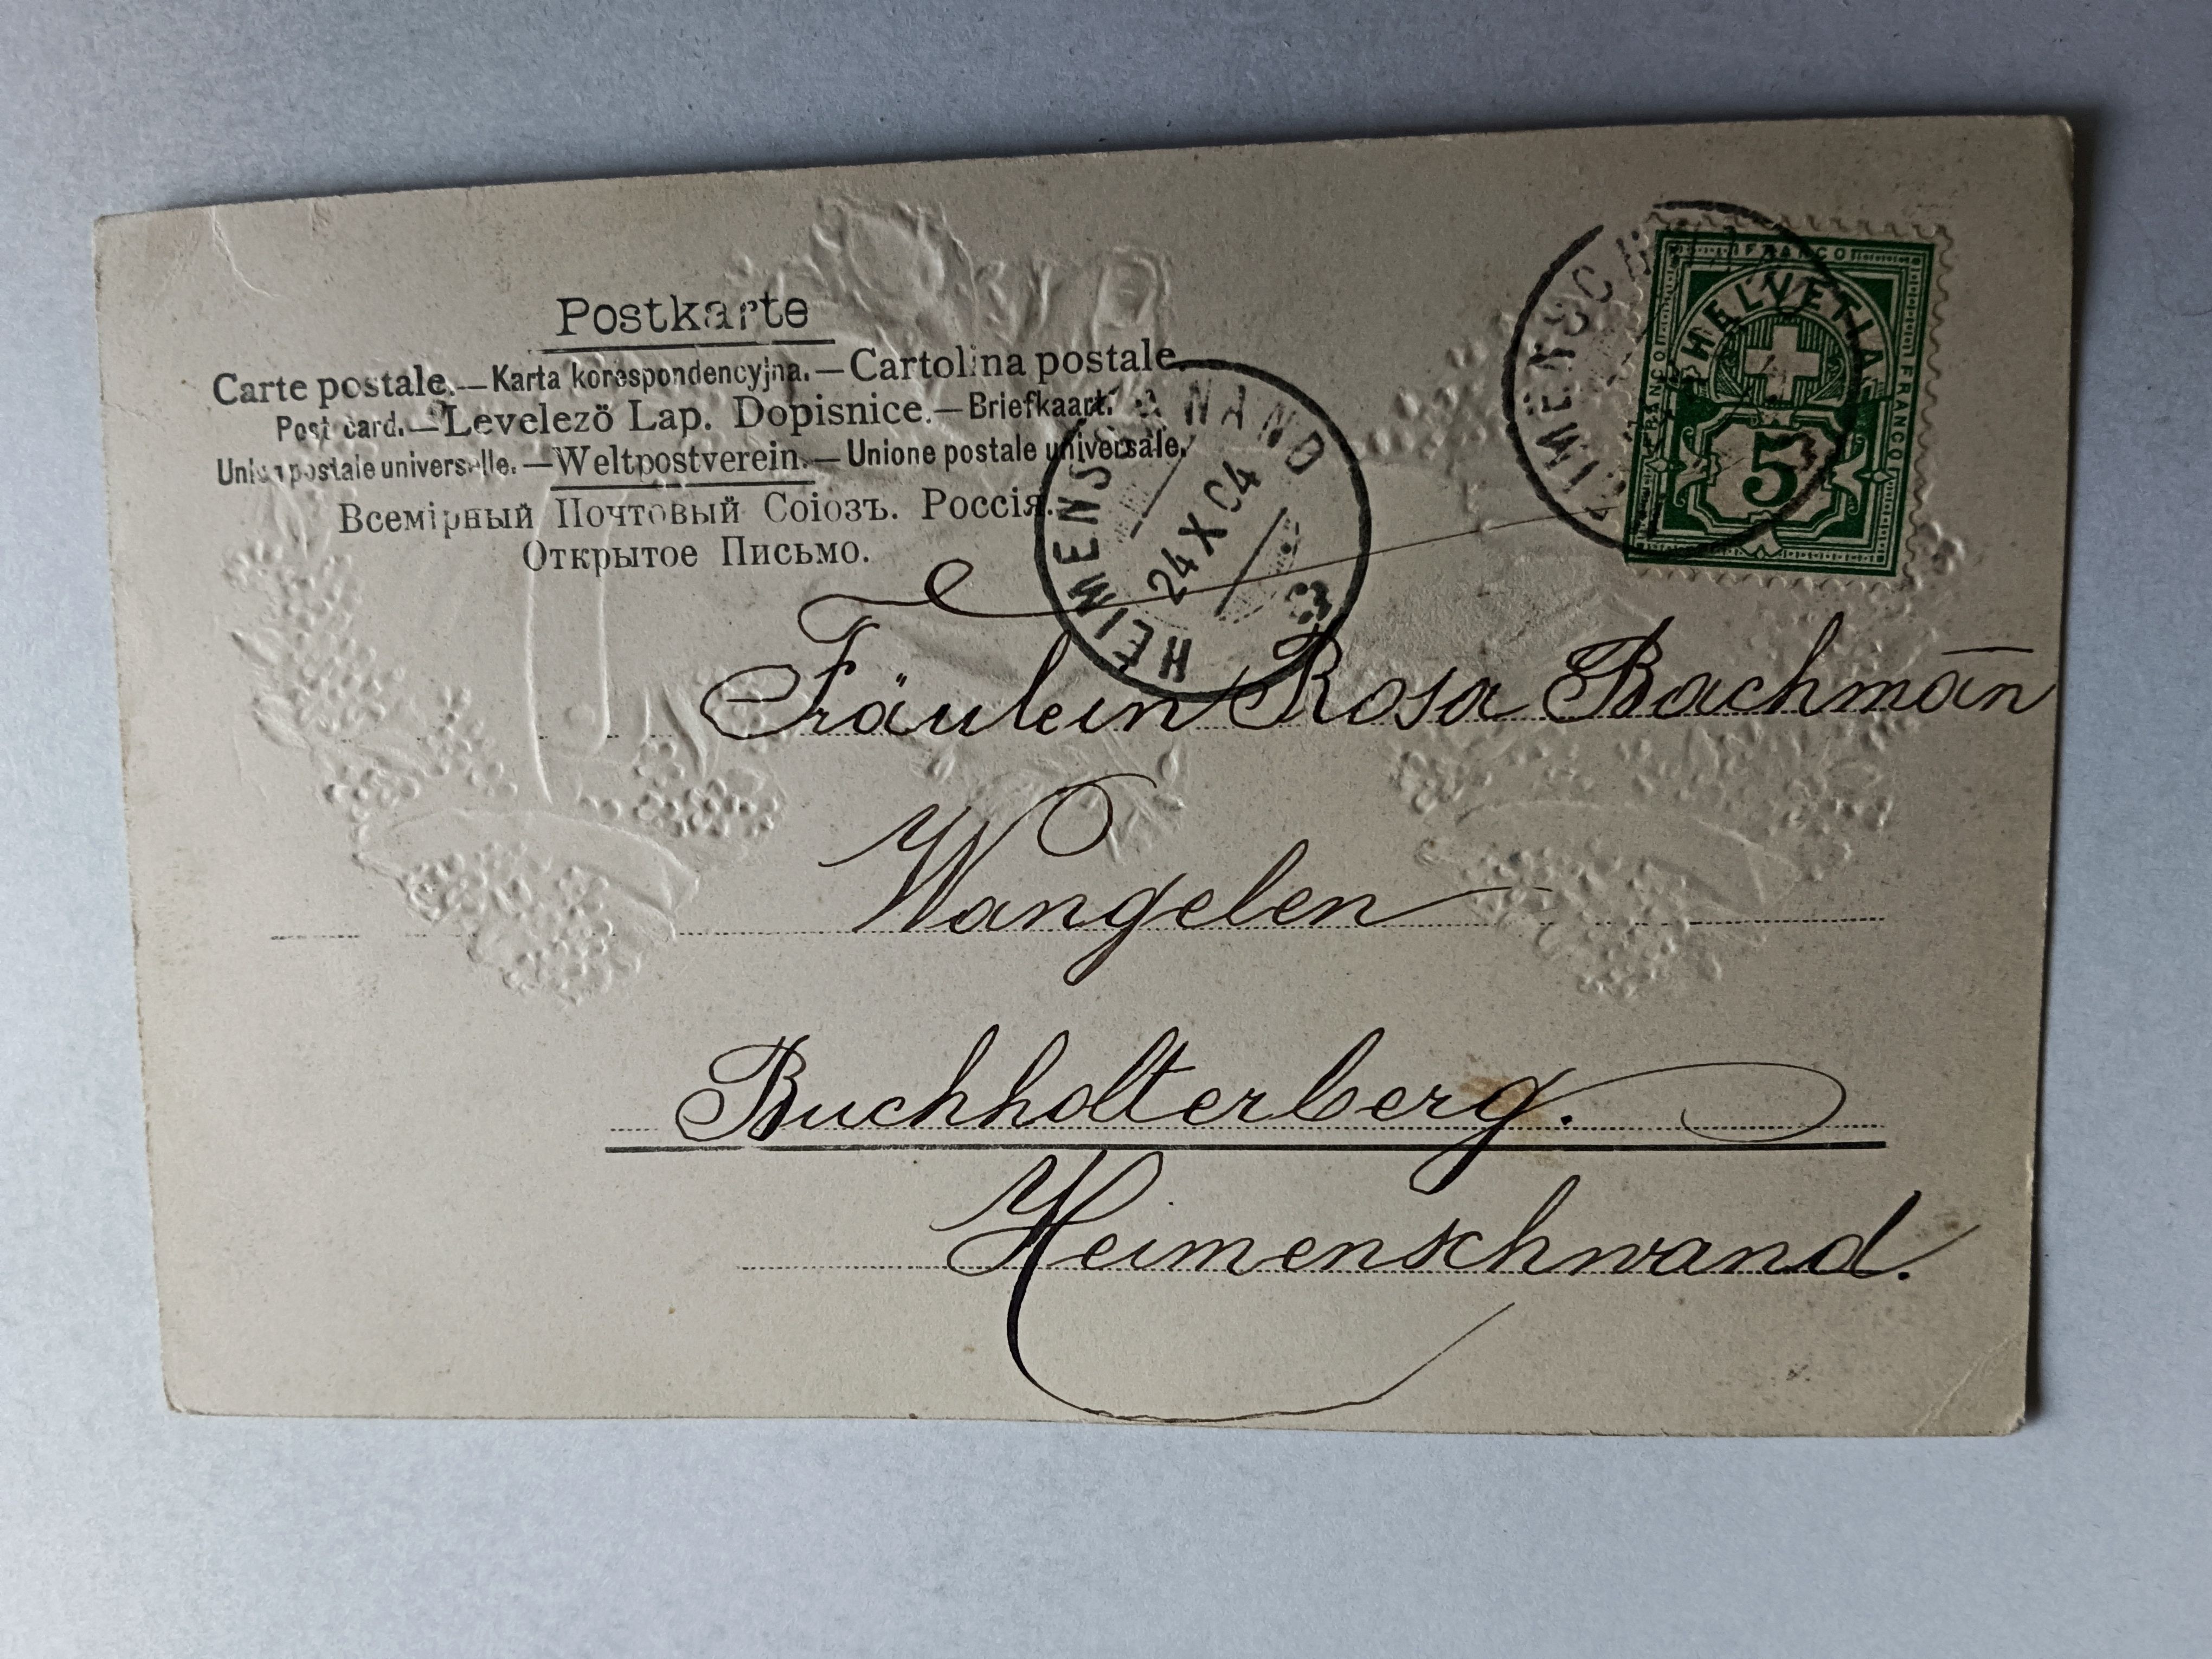 Postkarte
Carte postale. — Karta korespondencyjna. — Cartolina postale.
Post card. — Levelezö Lap. Dopisnice. — Briefkaart.
Union postale universelle. — Weltpostverein. — Unione postale universale.
Всемірный Почтовый Союзъ. Россія.
Открытое Письмо.
HEIMENSCHWAND
24 X 04
HEIMENSCHWAND
FRANCO
FRANCO
FRANCO
HELVETIA
5
Fräulein Rosa Bachman̄
Wangelen
Buchholterberg.
Heimenschwand.